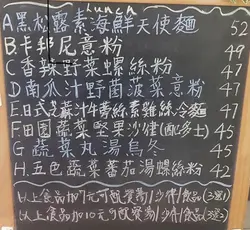 Lunch
A黑松露素海鮮天使麵 52
B.卡邦尼意粉 49
C香辣野菜螺絲粉 47
D南瓜汁野菌菠菜意粉 47
E.日式芝麻汁牛蒡絲素雞絲冷麵 47
F.田園蔬菜堅果沙律(配多士) 45
G 蔬菜丸湯烏冬 45
H.五色蔬菜蕃茄湯螺絲粉 42
以上食品加7元可配餐湯/沙律/食品(3選1)
以上食品加10元可配餐湯/沙律/食品(3選2)